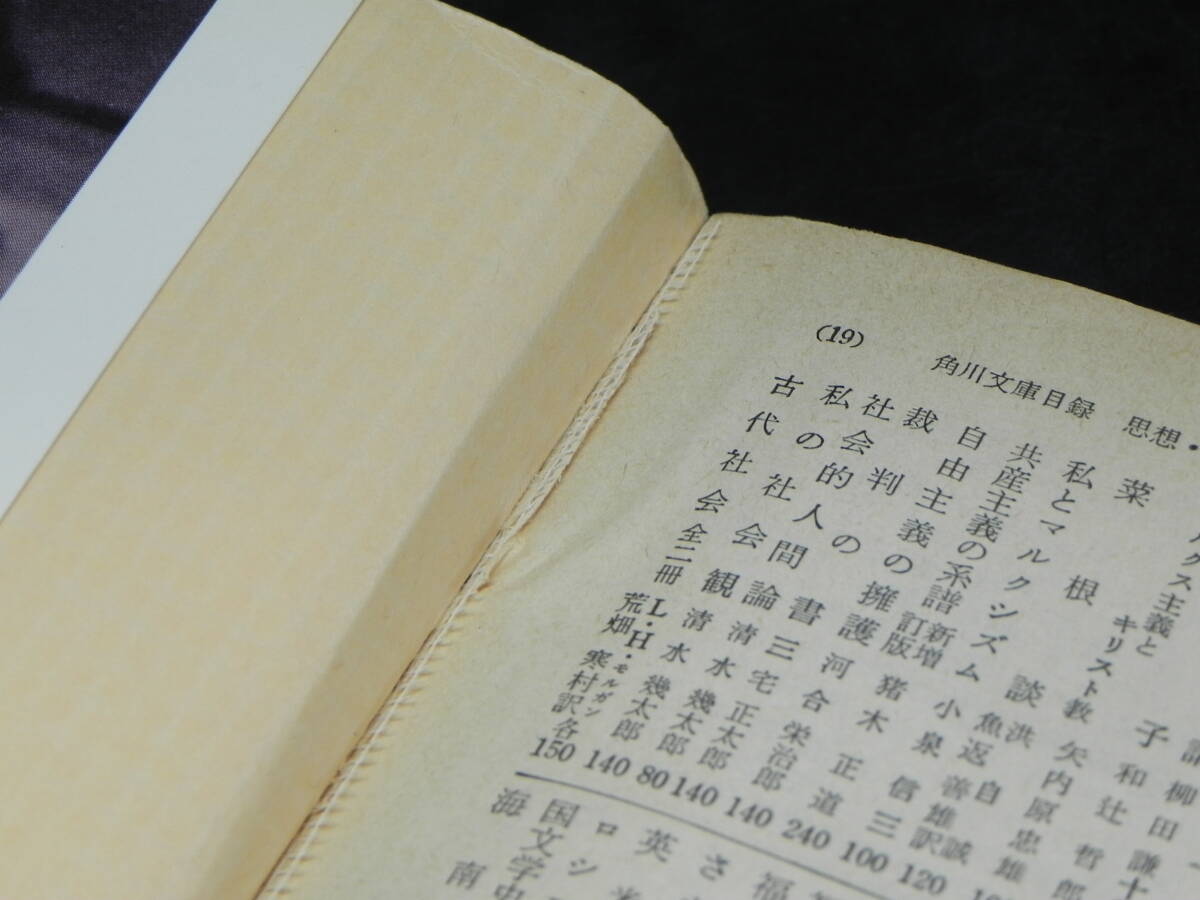 (19) 角川文庫目録 思想・
ルクス主義と キリスト教 矢内原忠雄
菜根談 洪自誠 魚返善雄訳 120
私とマルクシズム 小泉信三 100
共産主義の系譜 新増訂版 猪木正道 240
自由主義の擁護 河合栄治郎 140
裁判の書 三宅正太郎 140
社会的人間論 清水幾太郎 80
私の社会観 清水幾太郎 140
古代社会 全二冊 L・H・モルガン 荒畑寒村訳 各150
福
さ
英
ロシ
国文学
海
南